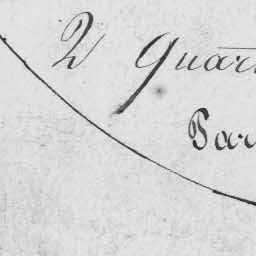 2 Quar
Par